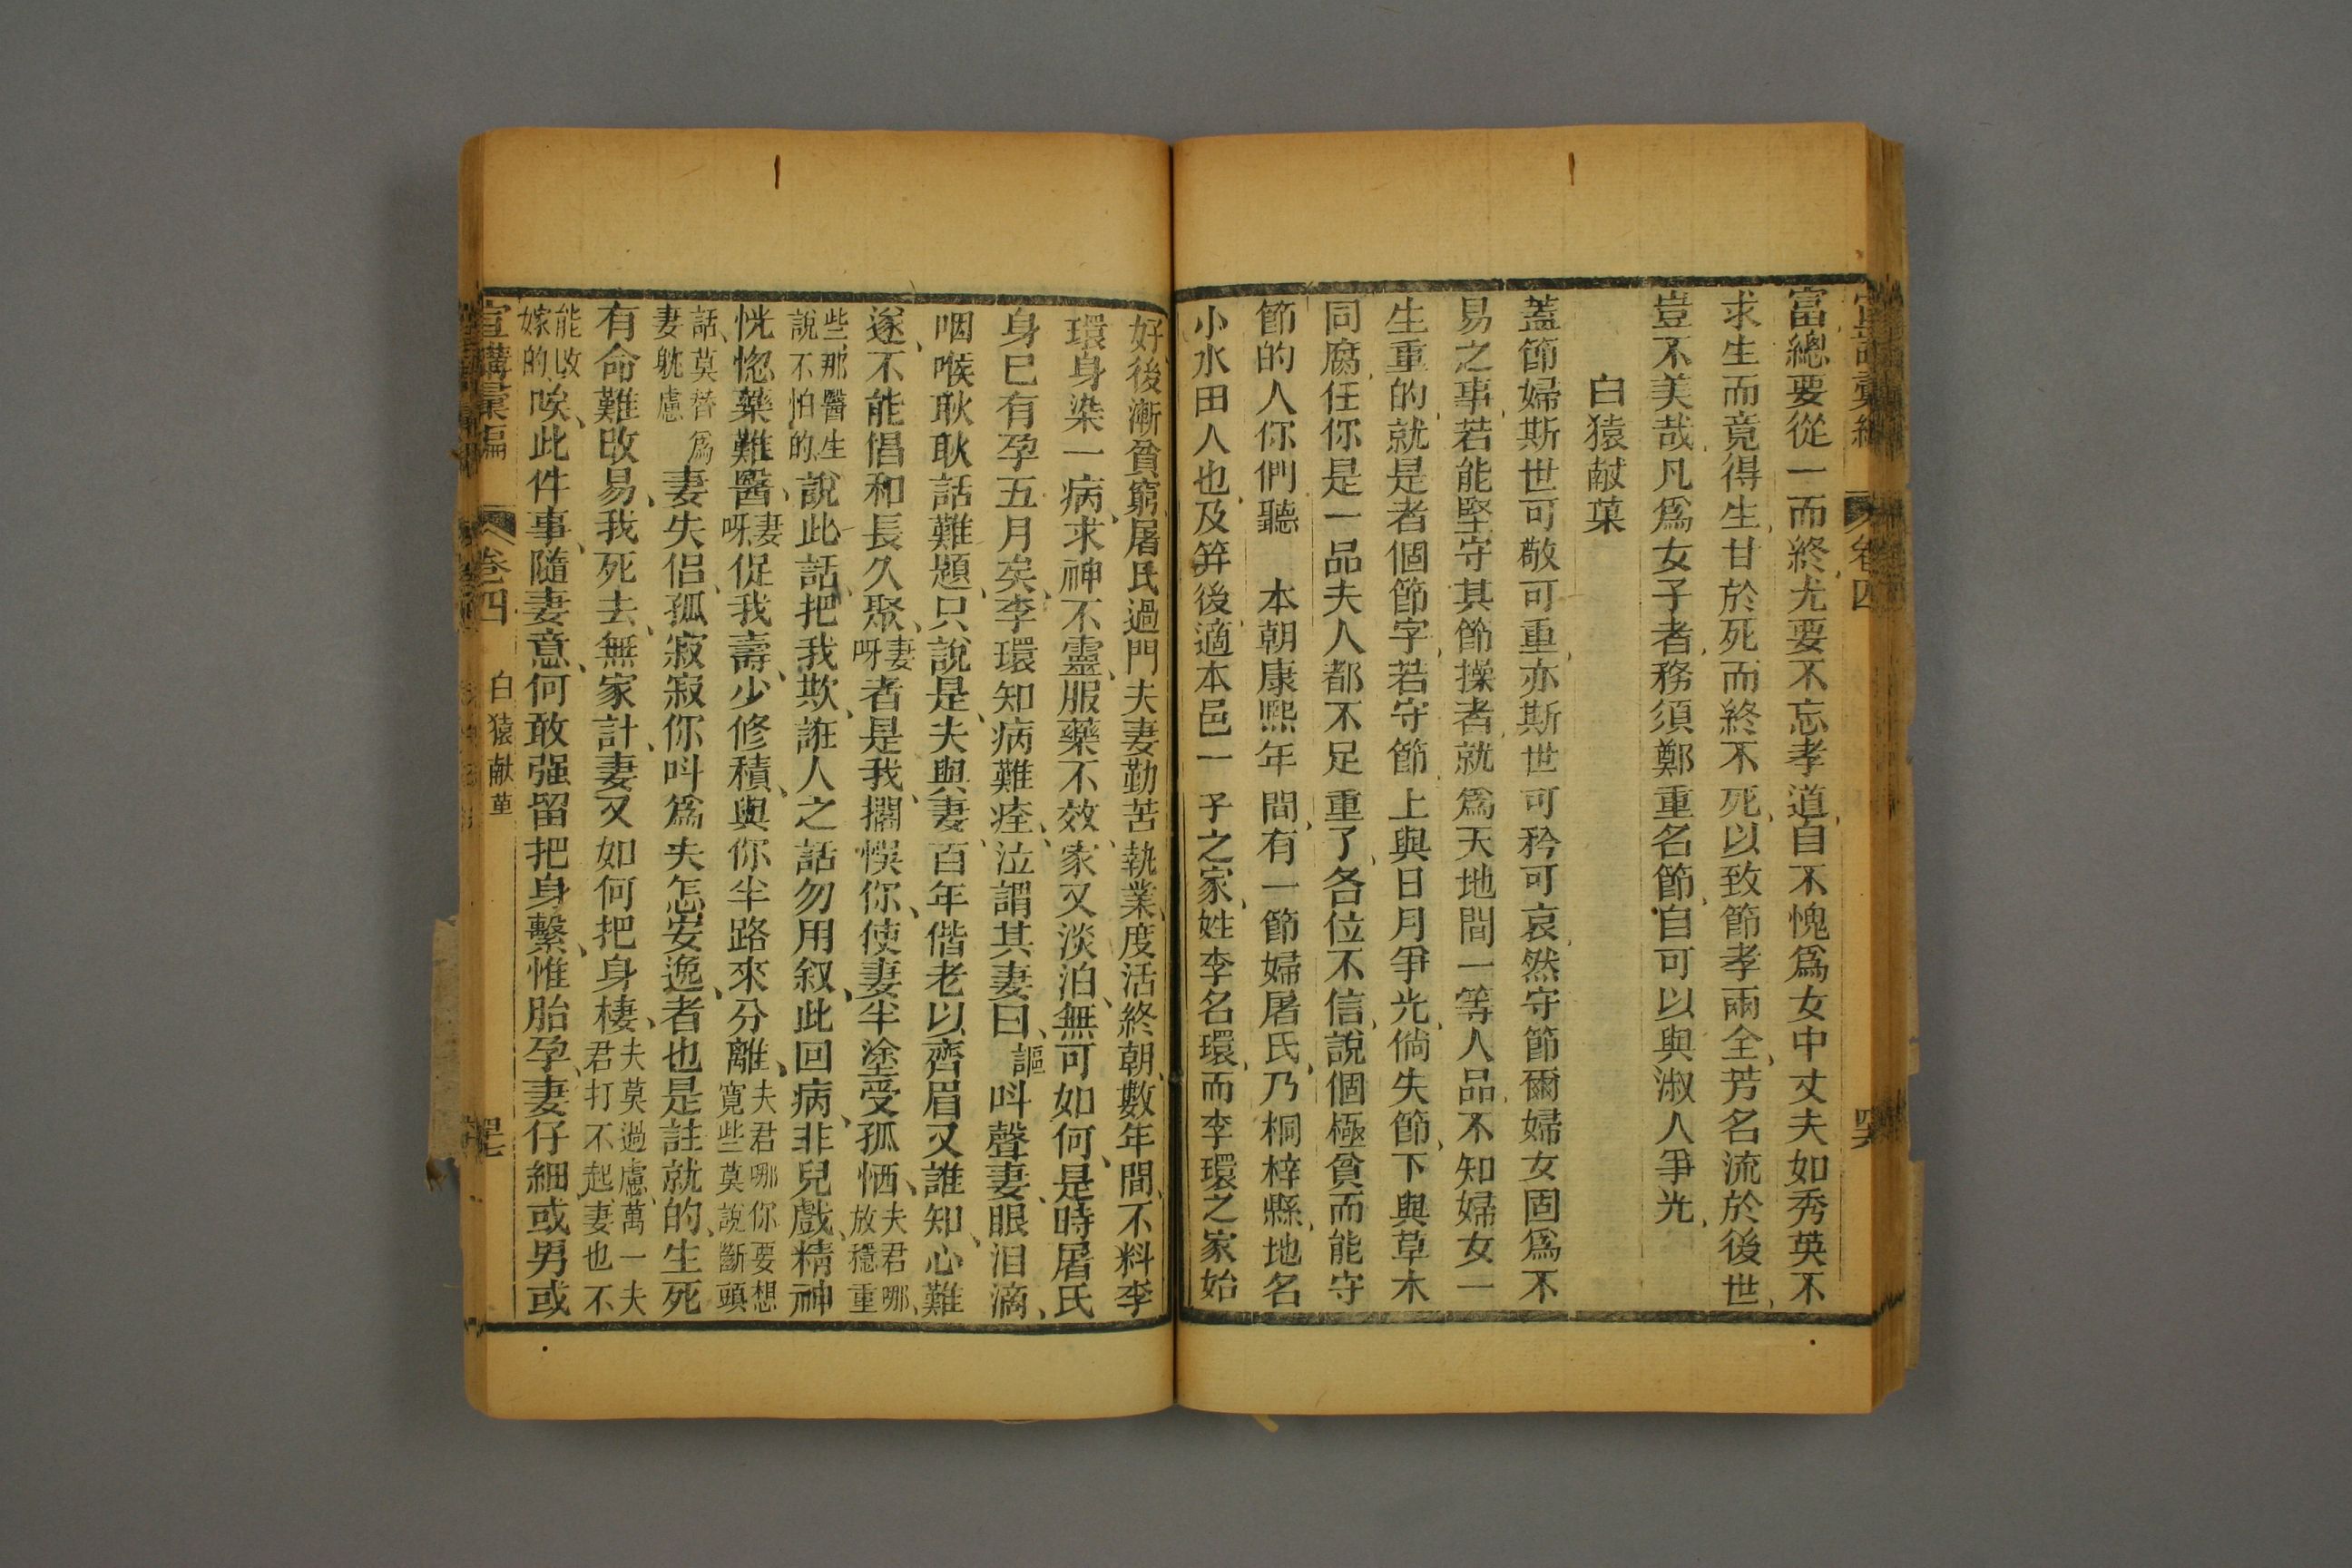 宣講彙編 卷四 四六
富總要從一而終、尤要不忘孝道、自不愧爲女中丈夫如秀英不
求生而竟得生、甘於死而終不死、以致節孝兩全、芳名流於後世、
豈不美哉、凡爲女子者、務須鄭重名節、自可以與淑人爭光、
白猿献菓
蓋節婦斯世可敬可重、亦斯世可矜可哀、然守節爾婦女固爲不
易之事、若能堅守其節操者、就爲天地間一等人品、不知婦女一
生重的、就是者個節字、若守節、上與日月爭光、倘失節、下與草木
同腐、任你是一品夫人都不足重了、各位不信、說個極貧而能守
節的人你們聽 本朝康熙年間、有一節婦屠氏、乃桐梓縣、地名
小水田人也、及笄後、適本邑一子之家、姓李名環、而李環之家始
好、後漸貧窮、屠氏過門夫妻勤苦、執業、度活終朝、數年間、不料李
環身染一病、求神不靈、服藥不效、家又淡泊、無可如何、是時屠氏
身已有孕五月矣、李環知病難痊、泣謂其妻曰、謳 呌聲妻、眼泪滴、
咽喉耿耿話難題、只說是、夫與妻、百年偕老以齊眉又誰知、心難
遂、不能倡和長久聚、妻呀 者是我、擱悞你、使妻半塗受孤恓、夫君哪、放穩重
些、那醫生說不怕的、說此話、把我欺、誑人之話勿用叙、此回病、非兒戲、精神
恍惚藥難醫、妻呀、促我壽、少修積、與你半路來分離、夫君哪你要想寬些莫說斷頭
話、莫替爲妻躭慮 妻失侶、孤寂寂你呌爲夫怎安逸、者也是註就的、生死
有命難改易、我死去、無家計、妻又如何把身棲、夫莫過慮、萬一夫君打不起妻也不
能改嫁的、唉、此件事、隨妻意、何敢强留把身繫、惟胎孕、妻仔細或男或
宣講彙編 卷四 白猿献菓 四七